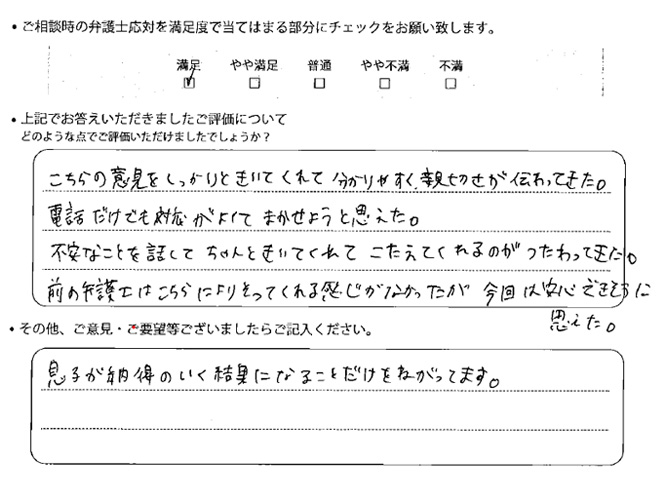 • ご相談時の弁護士応対を満足度で当てはまる部分にチェックをお願い致します。
満足 やや満足 普通 やや不満 不満
☑ □ □ □ □
• 上記でお答えいただきましたご評価について
どのような点でご評価いただけましたでしょうか？
こちらの意見をしっかりときいてくれて 分かりやすく、親切さが伝わってきた。
電話だけでも対応がよくて まかせようと思えた。
不安なことを話して ちゃんときいてくれて こたえてくれるのが つたわってきた。
前の弁護士はこちらによりそってくれる感じがなかったが 今回は安心できそうに
思えた。
• その他、ご意見・ご要望等ございましたらご記入ください。
息子が納得のいく結果になることだけをねがってます。